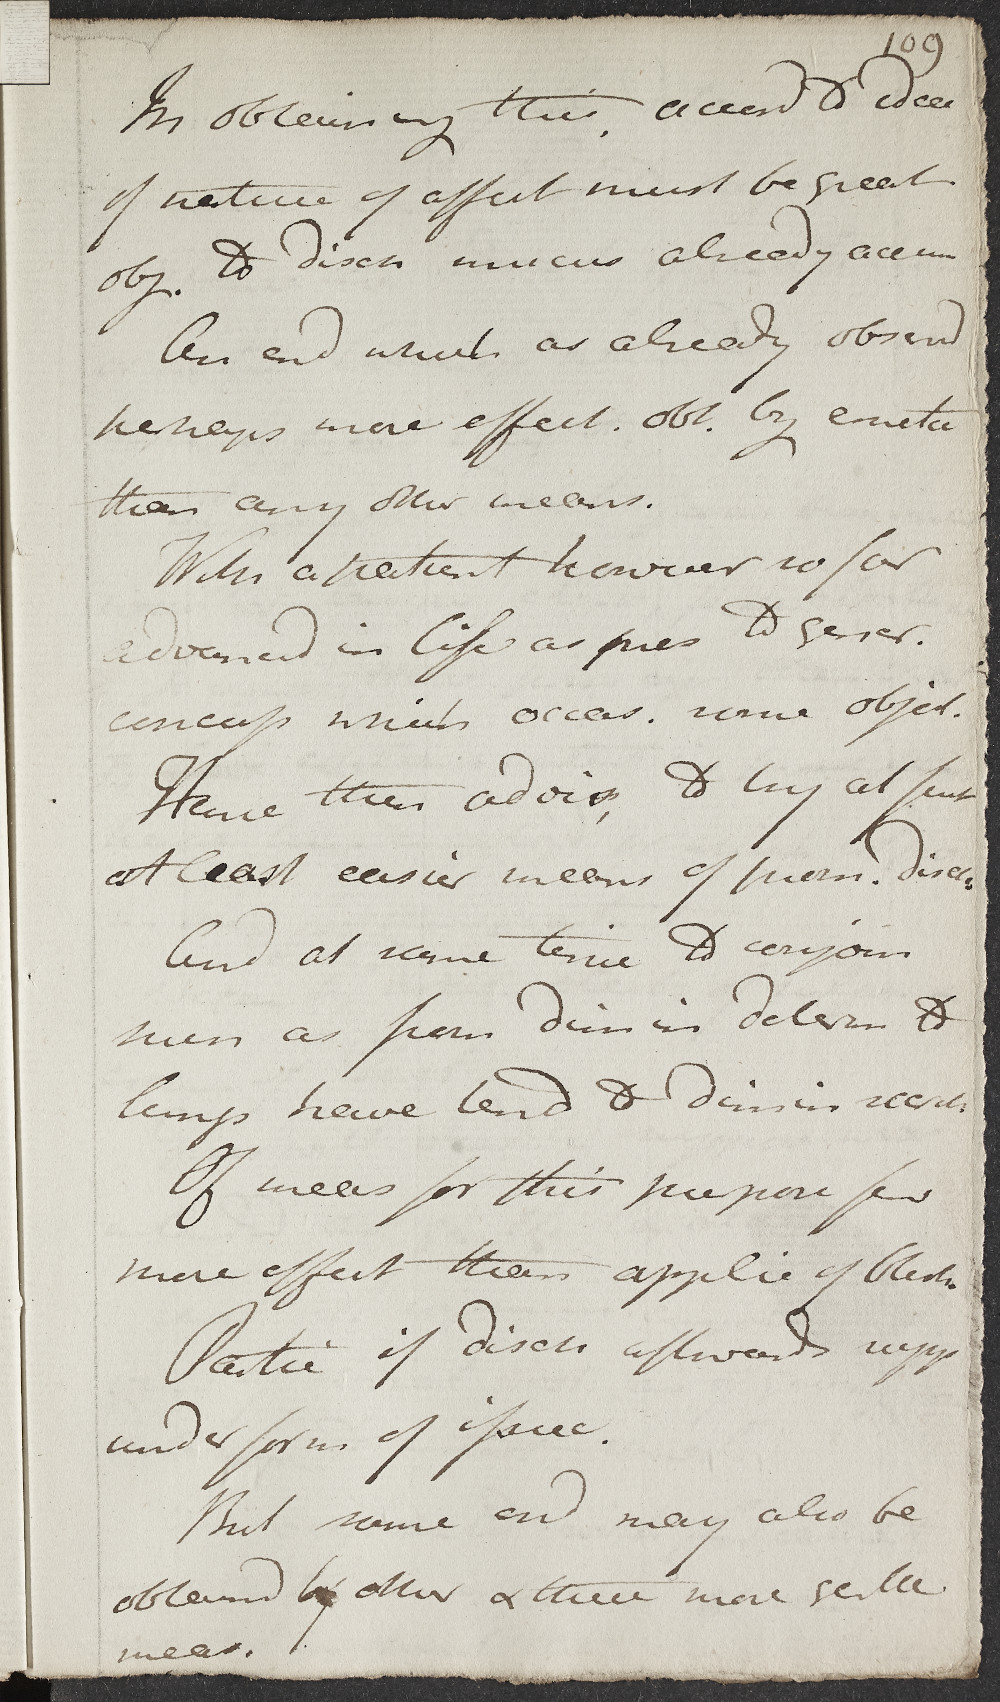 109
In obtaining this, accord to idea
of nature of affect must be great
obj. to disch mucus already accum
An end which as already observd
perhaps more effect. obt. by emetic
than any other means.
With a patient however so far
advanced in life as pres to gener.
concuss which occas. some object.
Have then advis, to try at first
at least easier means of prom. disch.
And at same time to conjoin
such as from dimin determ to
lungs have tend to dimin secret.
Of meas for this purpose few
more effect than applic of blist.
Partic if disch afterwards supp
under form of issue.
But same end may also be
obtaind by other & these more gentle
meas.